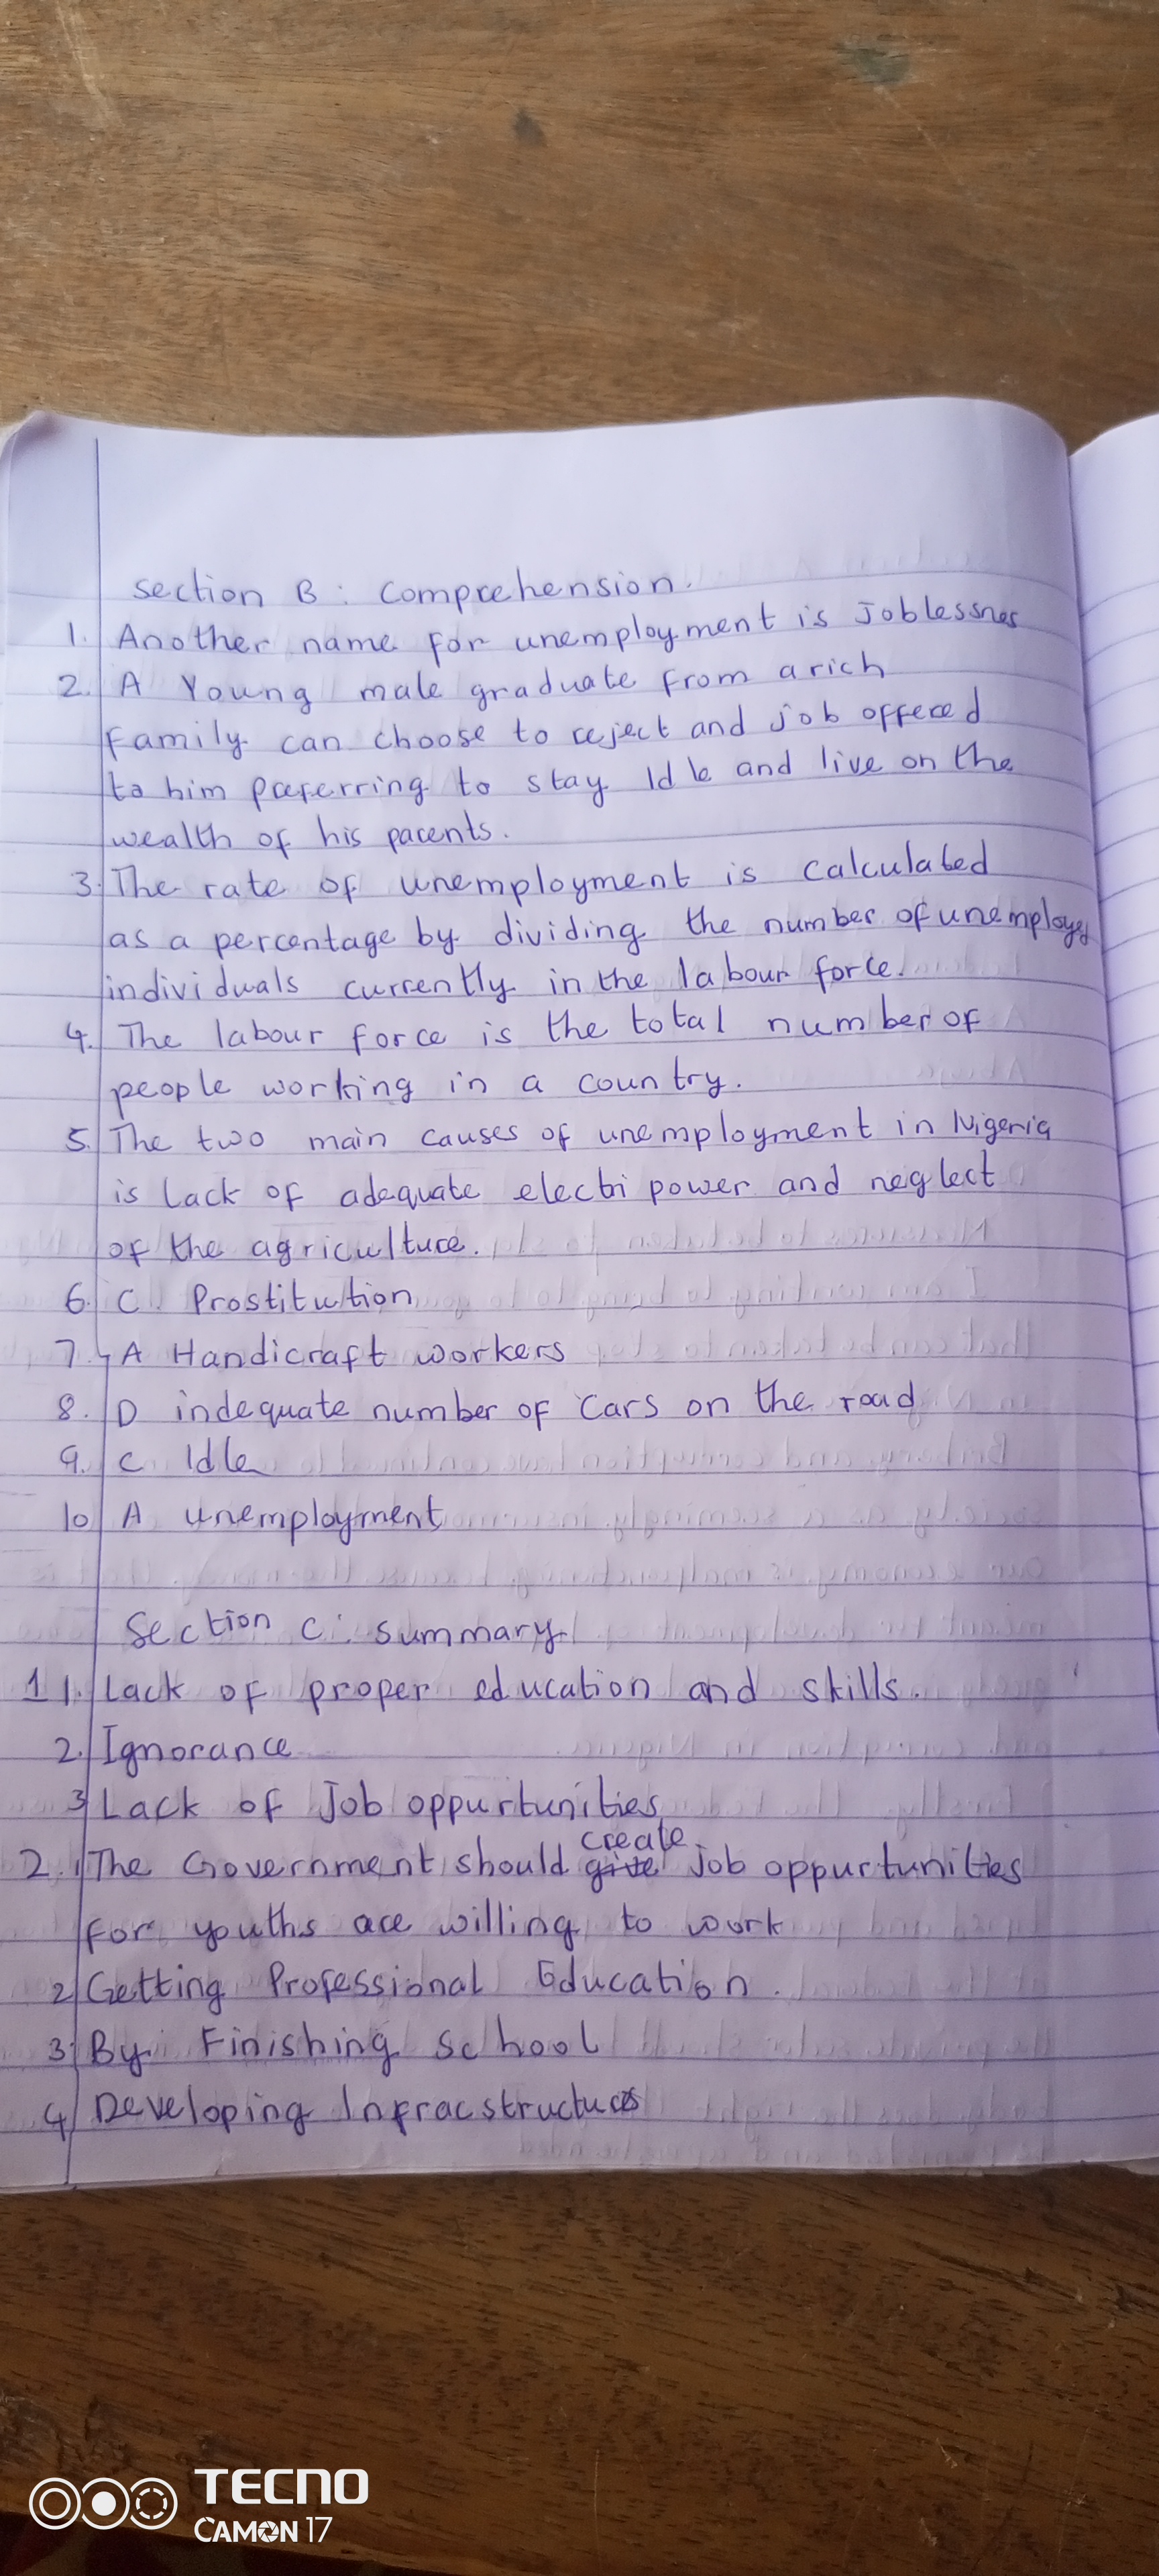 Section B: Comprehension.
1. Another name for unemployment is Joblessnes
2. A Young male graduate from a rich
family can choose to reject and job offered
to him preferring to stay Idle and live on the
wealth of his parents.
3. The rate of unemployment is calculated
as a percentage by dividing the number of unemployed
individuals currently in the labour force.
4. The labour force is the total number of
people working in a country.
5. The two main causes of unemployment in Nigeria
is lack of adequate electri power and neglect
of the agriculture.
6. C Prostitution
7. A Handicraft workers
8. D indequate number of Cars on the road
9. C Idle
10 A unemployment
Section C: summary
1 1. Lack of proper education and skills.
2. Ignorance
3 Lack of Job oppurtunities
create
2. 1 The Government should give job oppurtunities
for youths are willing to work
2 Getting Professional Education.
3. By Finishing School
4 Developing Infracstructures
TECNO
CAMON 17